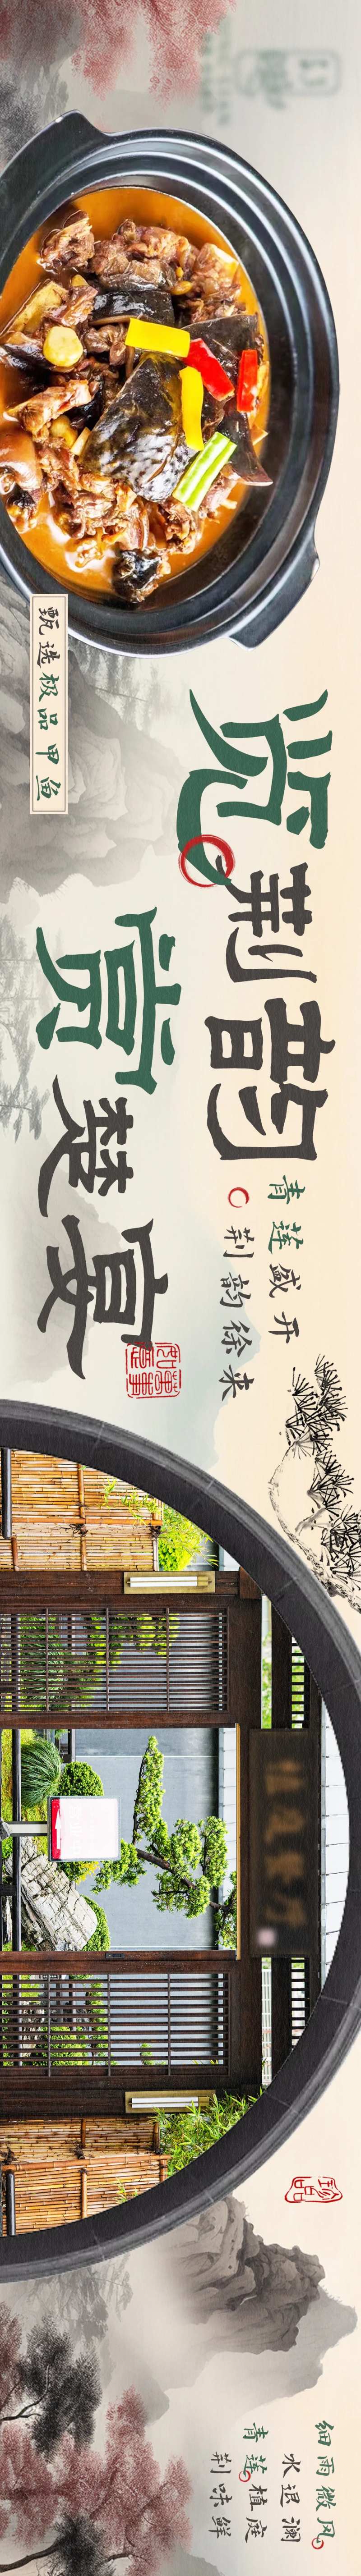 甄选极品甲鱼
览荆韵
赏楚宴
青莲盛开
荆韵徐来
珍品
细雨微风
水退澜
青莲植庭
荆味鲜